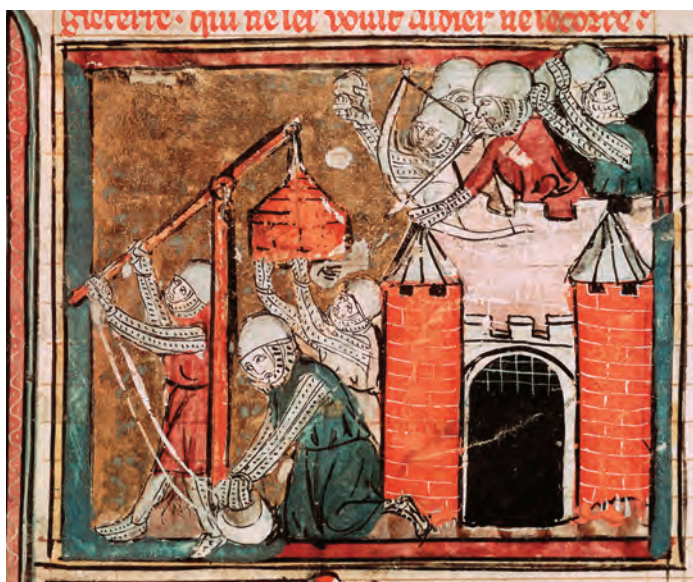 gleterre · qui ne les voult aidier ne secorre ·